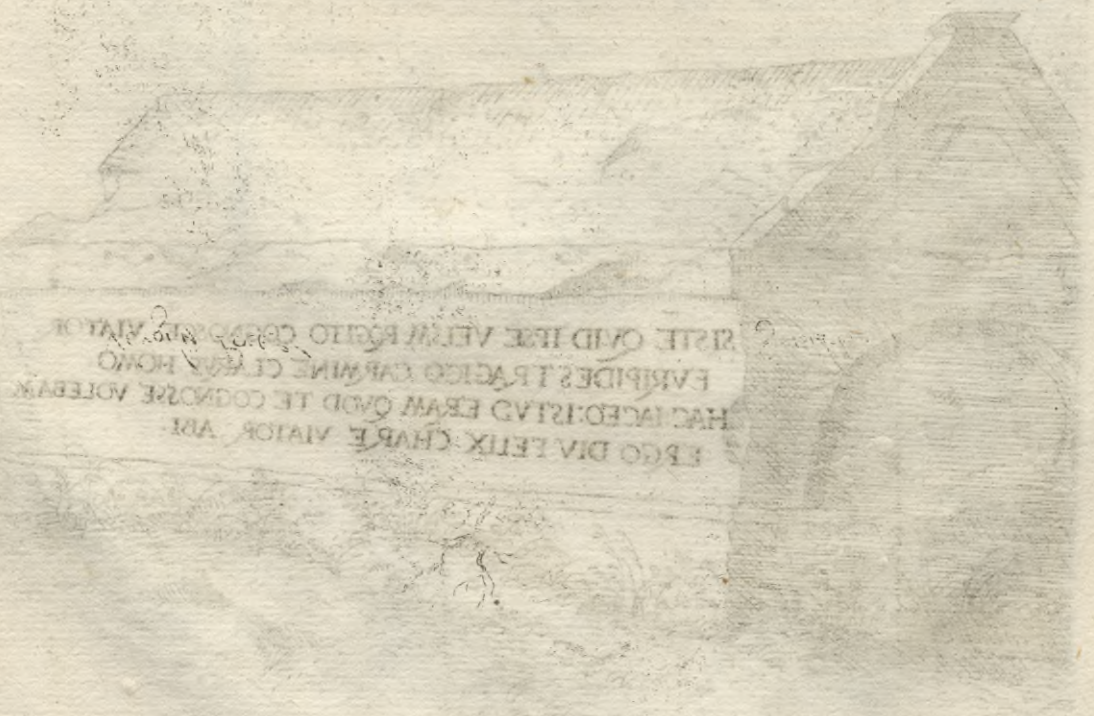 SISTE QVID IPSE VELIM ROGITO COGNOSSE VIATOR
EVRIPIDES TRAGICO CARMINE CLARVS HOMO
HAC IACEO:ISTVD ERAM QVOD TE COGNOSSE VOLEBAM
ERGO DIV FELIX CHARE VIATOR ABI.